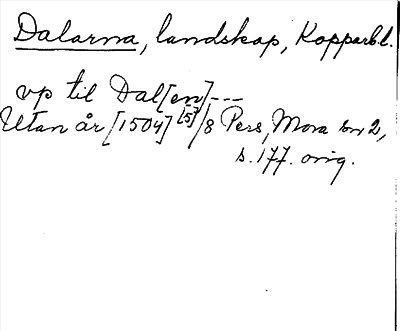 Dalarna, landskap, Kopparb.l.
vp til Dal[en]---
Utan år [1504] [5]/8 Pers, Mora sn 2,
s.177. orig.